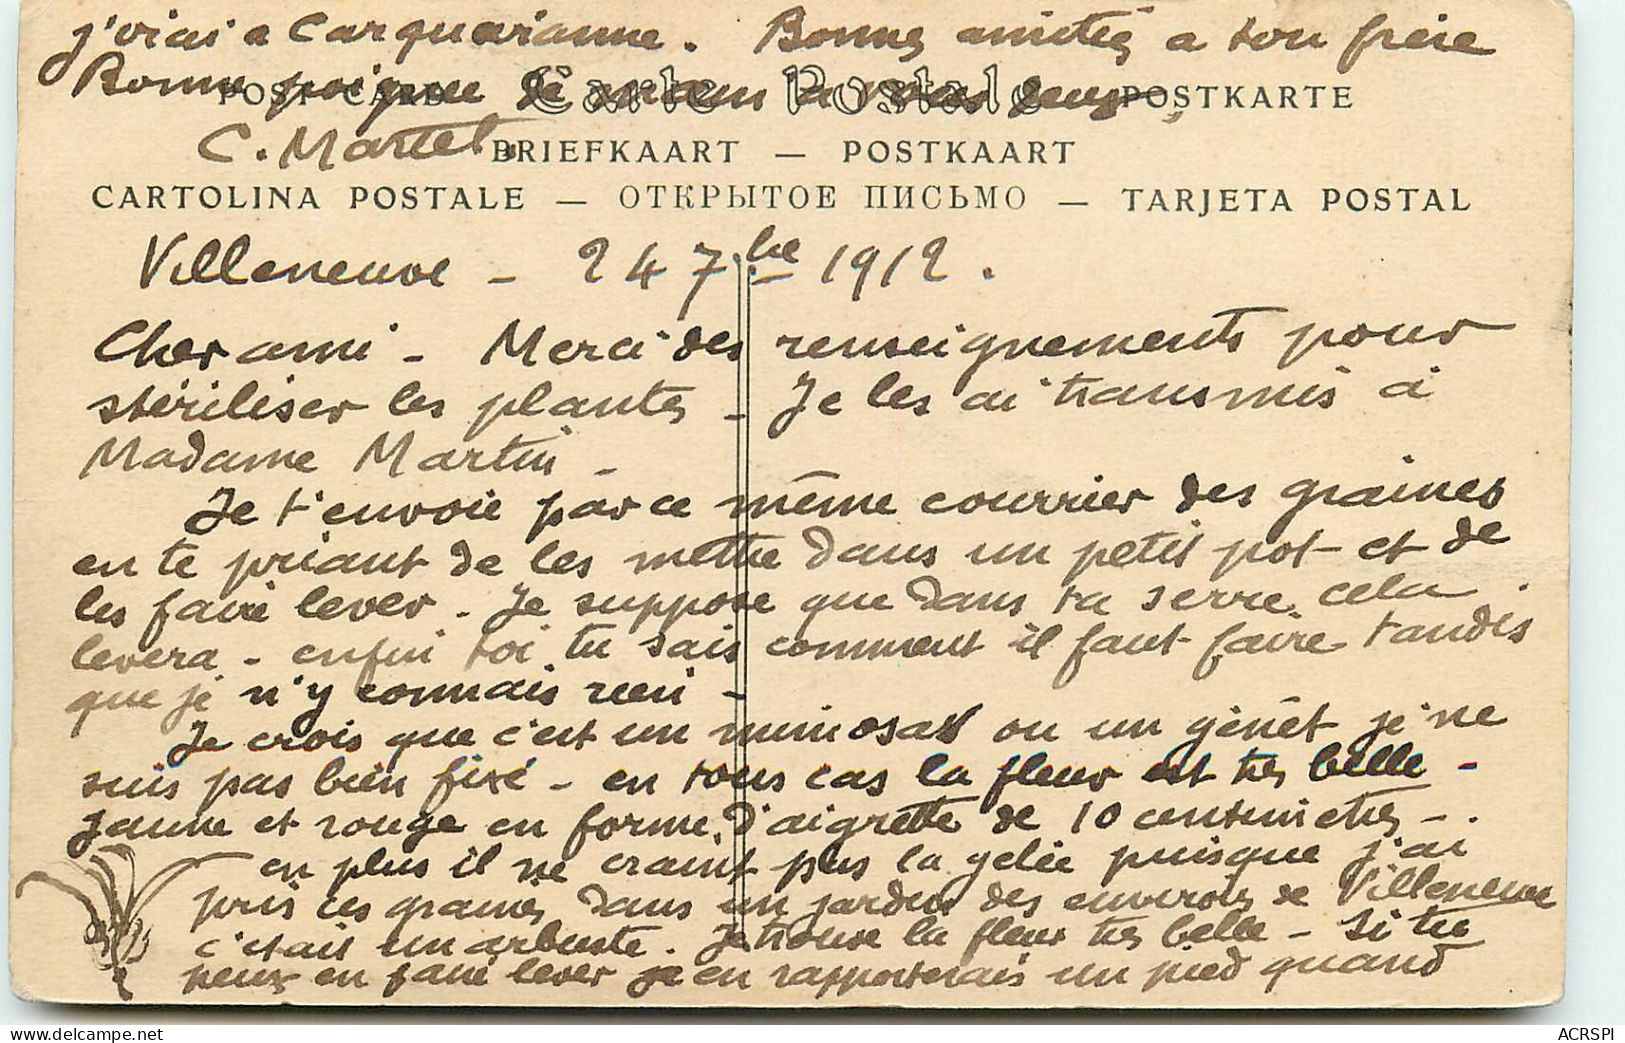 j'irai a Carqueiranne. Bonnes amitiés a ton frère
Bonne poignée de mains a vous deux
POST CARD Carte Postale POSTKARTE
C. Martel.
BRIEFKAART — POSTKAART
CARTOLINA POSTALE — ОТКРЫТОЕ ПИСЬМО — TARJETA POSTAL
Villeneuve - 24 7bre 1912.
Cher ami - Merci des renseignements pour
stériliser les plantes - Je les ai transmis à
Madame Martin -
Je t'envoie par ce même courrier des graines
en te priant de les mettre dans un petit pot - et de
les faire lever - Je suppose que dans ta serre cela
levera - enfin toi tu sais comment il faut faire tandis
que je n'y connais rien -
Je crois que c'est un mimosas ou un gênet je ne
suis pas bien fixé - en tous cas la fleur est très belle -
jaune et rouge en forme d'aigrette de 10 centimetres - .
en plus il ne craint pas la gelée puisque j'ai
pris ces graines dans un jardin des environs de Villeneuve
c'etait un arbuste. Je trouve la fleur très belle - Si tu
peux en faire lever je en rapporterais un pied quand
ACRSPI